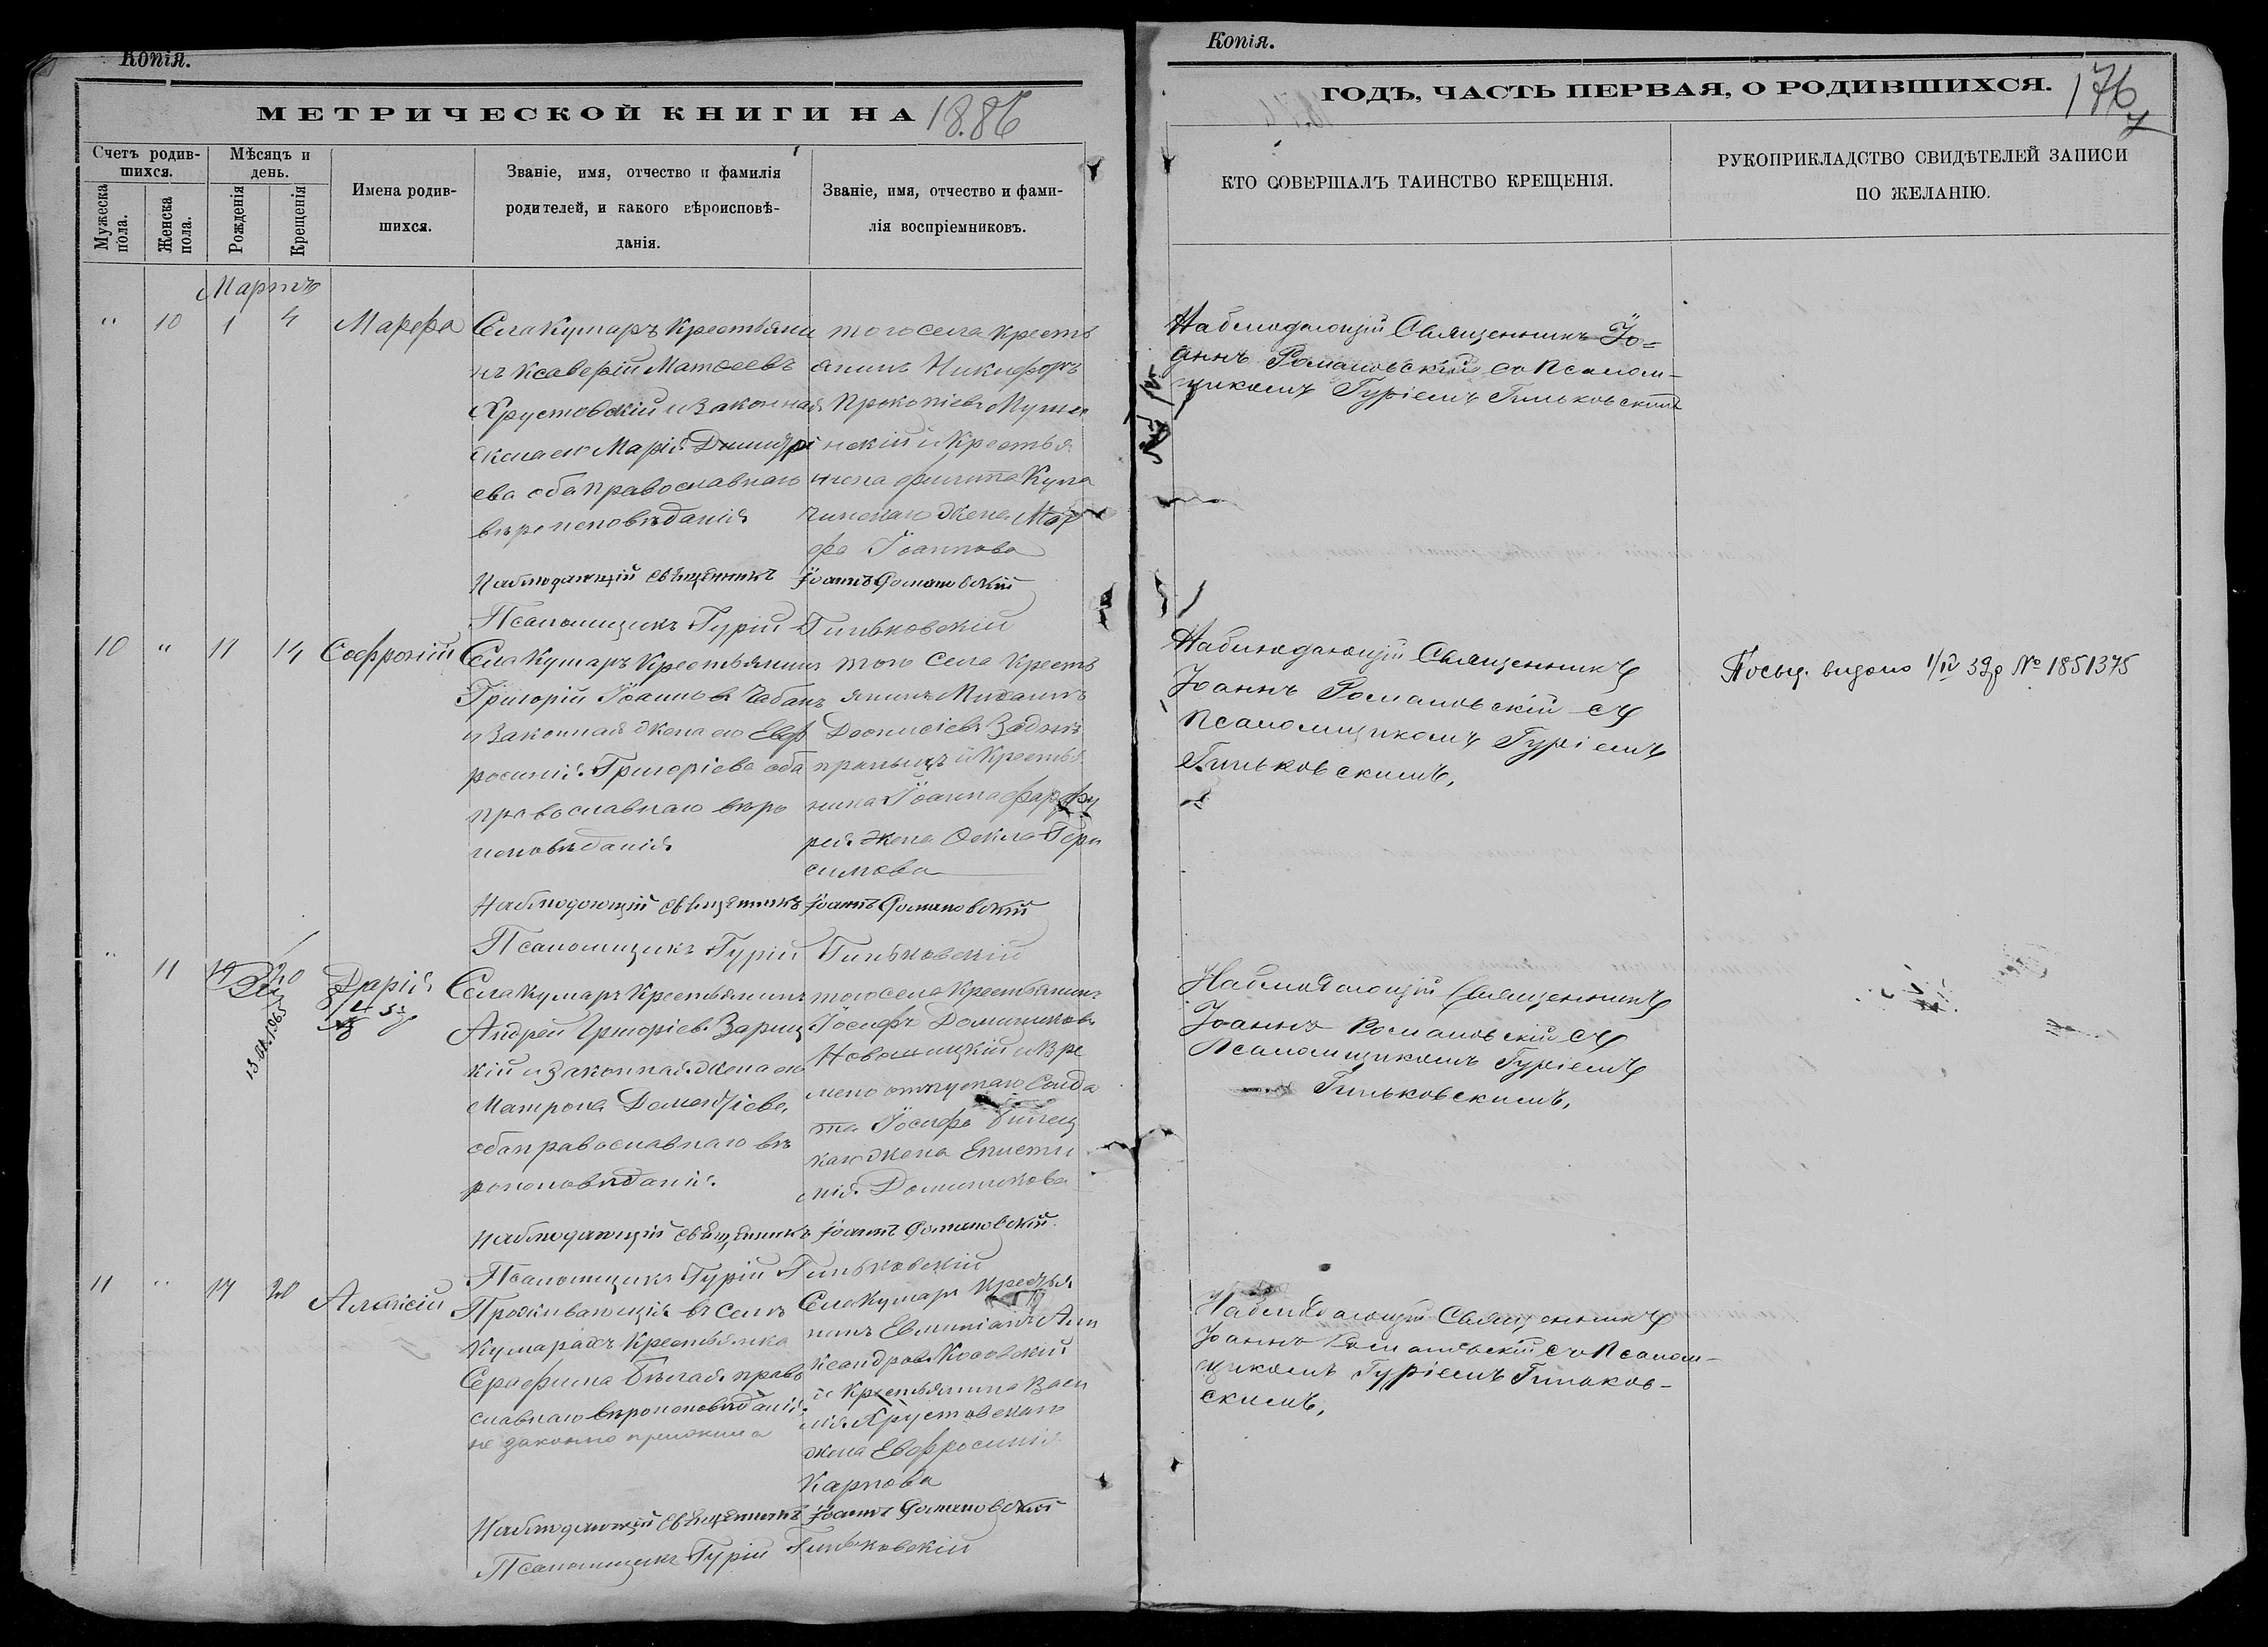 Копія.
МЕТРИЧЕСКОЙ КНИГИ НА 1886
Счетъ родив-
шихся.
Мужеска
пола.
Женска
пола.
Мѣсяцъ и
день.
Рожденія
Крещенія
Имена родив-
шихся.
Званіе, имя, отчество и фамилія
родителей, и какого вѣроисповѣ-
данія.
Званіе, имя, отчество и фами-
лія воспріемниковъ.
Мартъ
" 10 1 4 Марфа
Села Кумаръ Крестьяни
нъ Ксаверій Матѳеевъ
Хрустовскій и Законная
жена его Марія Димитрі
ева оба православнаго
вѣроисповѣданія
того села кресть
янинъ Никифоръ
Прокопіевъ
нскій и Крестья
нина Филиппа
жена Мар
фа Іоаннова
Наблюдающій священникъ Іоаннъ Романовскій
Псаломщикъ Гурій Гиньковскій
10 " 11 14 Софроній
Села Кумаръ Крестьянинъ
Григорій Іоанновъ Чабанъ
и Законная жена его Евф
росинія Григоріева оба
православнаго вѣро
исповѣданія
того села Кресть
янинъ Михаилъ
Діонисіевъ
и Крестья
нина Іоанна
жена Ѳекла Гера
симова
Наблюдающій священникъ Іоаннъ Романовскій
Псаломщикъ Гурій Гиньковскій
" 11 19 20 Дарія
13.01.1965
Села Кумаръ Крестьянинъ
Андрей Григоріевъ Зариц
кій и Законная жена его
Матрона Дементіева,
оба православнаго вѣ
роисповѣданія.
того села Крестьянинъ
Іосифъ Доминиковъ
Новицкій и Вре
мено отпускнаго Солда
та Іосифа
жена Еписти
мія Доминикова
Наблюдающій священникъ Іоаннъ Романовскій
Псаломщикъ Гурій Гиньковскій
11 " 17 20 Алексій
Проживающія въ селѣ
Кумарахъ Крестьянка
Серафима Бѣлая право
славнаго вѣроисповѣданія
не законно прижила
Села Кумаръ Крестья
нинъ Евминіанъ Але
ксандровъ Косовскій
и Крестьянина Васи
лія Хрустовскаго
жена Евфросинія
Карпова
Наблюдающій священникъ Іоаннъ Романовскій
Псаломщикъ Гурій Гиньковскій
Копія.
ГОДЪ, ЧАСТЬ ПЕРВАЯ, О РОДИВШИХСЯ.
176
КТО СОВЕРШАЛЪ ТАИНСТВО КРЕЩЕНІЯ.
РУКОПРИКЛАДСТВО СВИДѢТЕЛЕЙ ЗАПИСИ
ПО ЖЕЛАНІЮ.
Наблюдающій Священникъ Іо=
аннъ Романовскій со Псалом-
щикомъ Гуріемъ Гиньковскимъ
Наблюдающій Священникъ
Іоаннъ Романовскій съ
Псаломщикомъ Гуріемъ
Гиньковскимъ,
Посвід. видано 1/IV 39р № 1851375
Наблюдающій Священникъ
Іоаннъ Романовскій съ
Псаломщикомъ Гуріемъ
Гиньковскимъ,
Наблюдающій Священникъ
Іоаннъ Романовскій съ Псалом-
щикомъ Гуріемъ Гиньков-
скимъ,